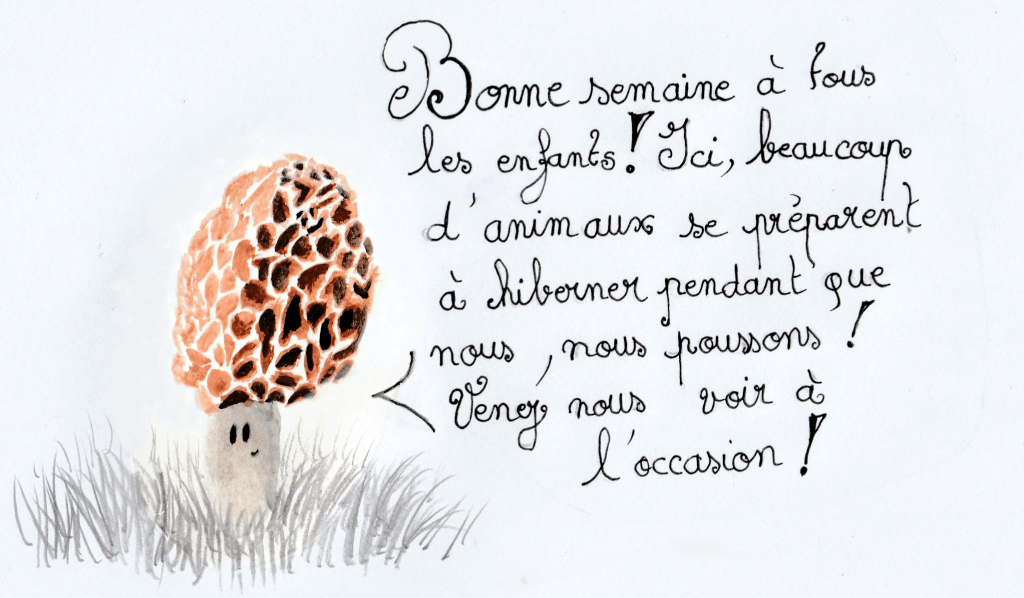 Bonne semaine à tous
les enfants ! Ici, beaucoup
d'animaux se préparent
à hiberner pendant que
nous, nous poussons !
Venez nous voir à
l'occasion !